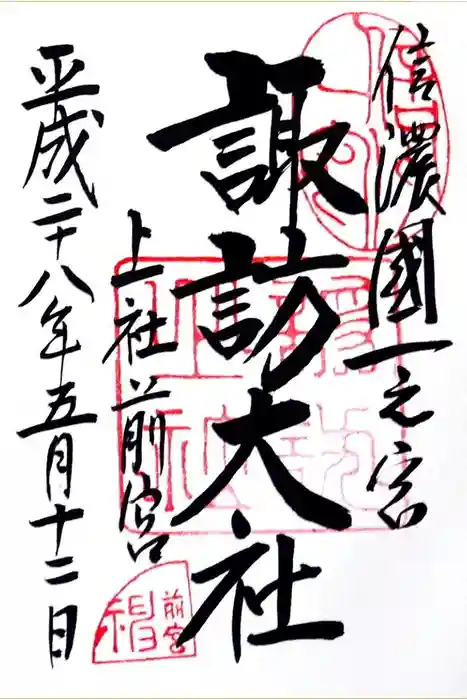 信濃國一之宮
諏訪大社
上社前宮
平成二十八年五月十二日
前宮